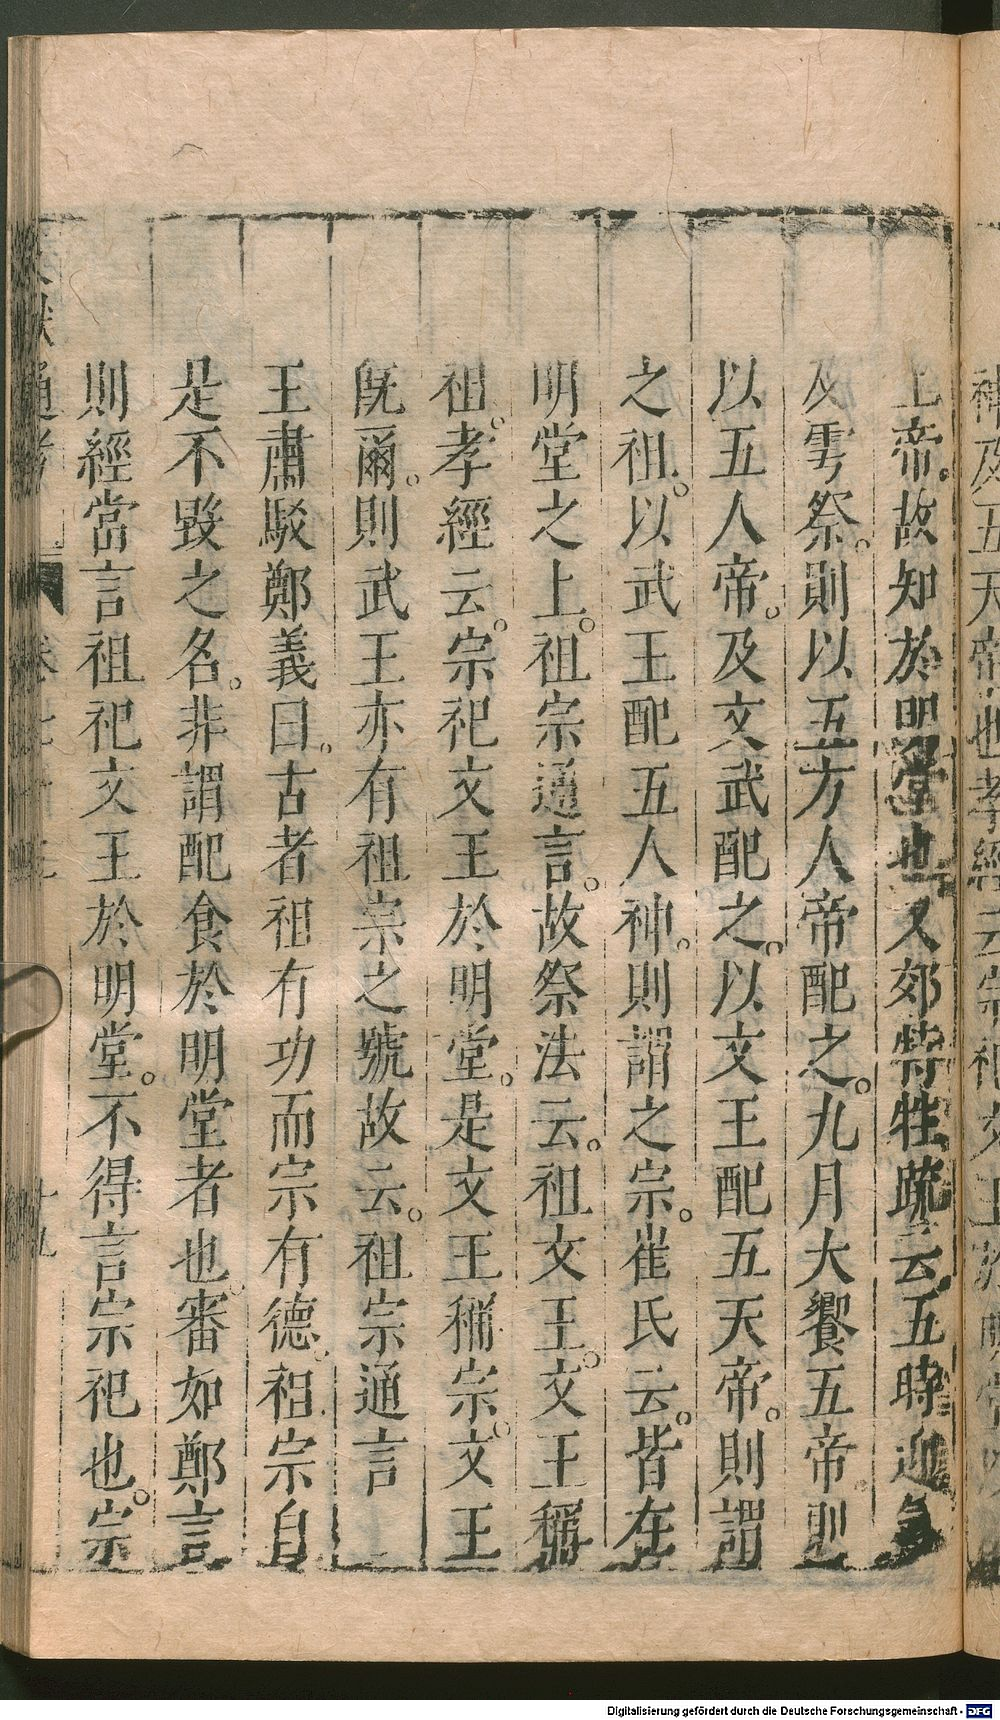 上帝。故知於明堂也又郊特牲疏云五時迎氣
及雩祭。則以五方人帝配之。九月大饗五帝則
以五人帝。及文武配之。以文王配五天帝。則謂
之祖。以武王配五人神。則謂之宗。崔氏云。皆在
明堂之上。祖宗通言。故祭法云。祖文王。文王稱
祖。孝經云。宗祀文王於明堂。是文王稱宗。文王
旣爾。則武王亦有祖宗之號故云。祖宗通言
王肅駁鄭義曰。古者祖有功而宗有德。祖宗自
是不毀之名。非謂配食於明堂者也。審如鄭言
則經當言祖祀文王於明堂。不得言宗祀也。宗
獻通考
卷七十三
十九
神及五天帝也孝經云宗祀文王於明堂
Digitalisierung gefördert durch die Deutsche Forschungsgemeinschaft - DFG